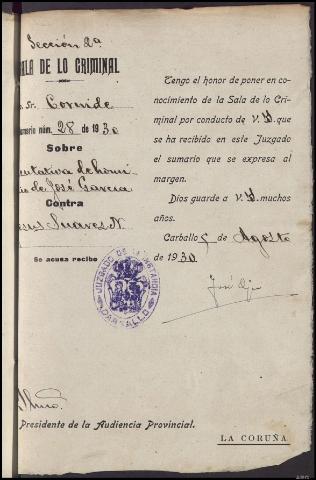 Sección 2ª
SALA DE LO CRIMINAL
Sr. Cornide
Sumario núm. 28 de 1930
Sobre
tentativa de homi
io de José García
Contra
sus Suarez N.
Se acusa recibo
Tengo el honor de poner en co-
nocimiento de la Sala de lo Cri-
minal por conducto de V. I. que
se ha recibido en este Juzgado
el sumario que se expresa al
margen.
Dios guarde a V. I. muchos
años.
Carballo 5 de Agosto
de 1930
José
JUZGADO DE INSTANCIA
CARBALLO
Ilmo.
Presidente de la Audiencia Provincial.
LA CORUÑA